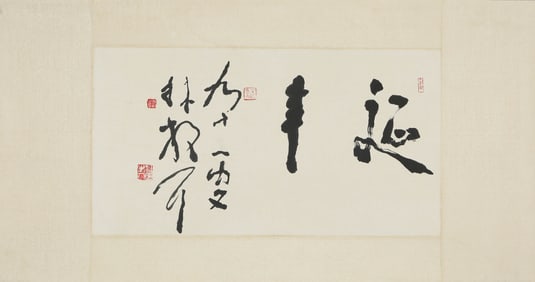 延年
九十一叟
林散耳